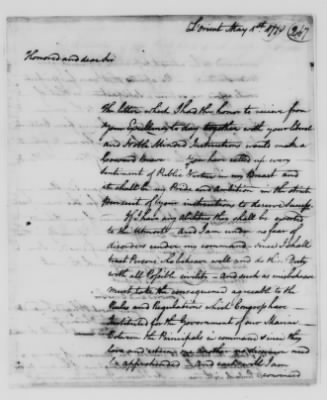 L'Orient May 1st 1779 247
Honored and dear Sir
The letter which I had the honor to receive from
your Excellency to day together with your liberal
and Noble Minded Instructions would make a
Coward brave You have called up every
Sentiment of Public Virtue in my Breast and
it shall be my Pride and Ambition in the strict
pursuit of your instructions to deserve Success
If I have any abilities they shall be exerted
to the utmost And I am under no fear of
disorders under my command Since I shall
treat Persons who behave well and do their Duty
with all Possible And such as misbehave
must take the consequences agreeable to the
Rules and Regulations which Congress have
Instituted for the Government of our Marine
between the Principals in command
love and esteem no
be apprehended And each with I am